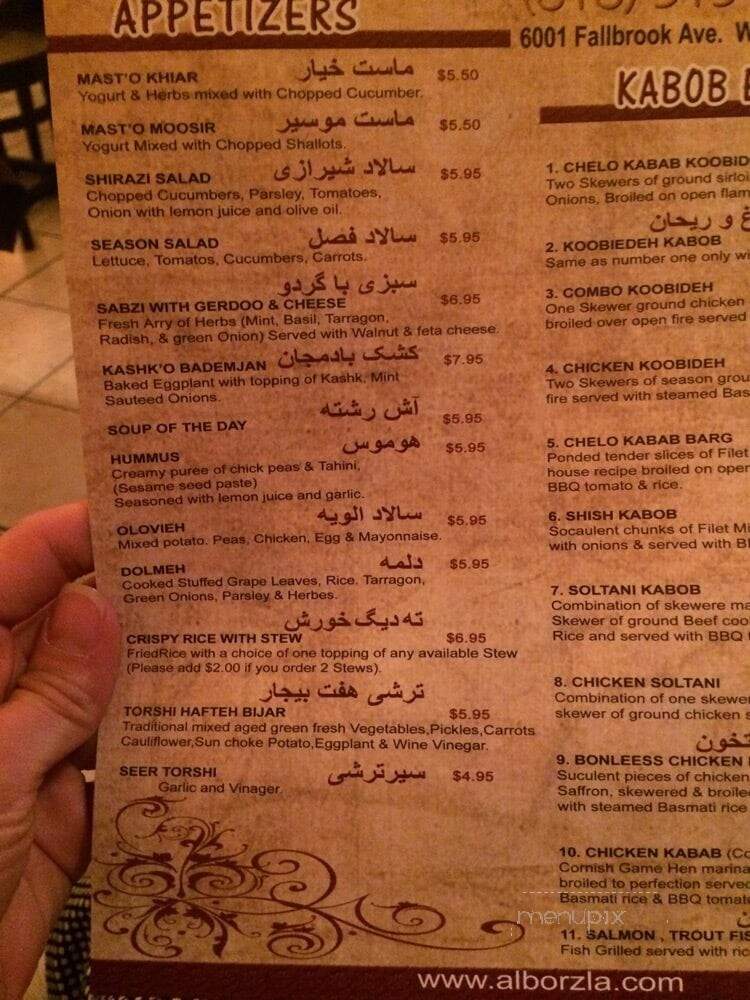 APPETIZERS
6001 Fallbrook Ave. W
MAST'O KHIAR ماست خیار $5.50
Yogurt & Herbs mixed with Chopped Cucumber.
MAST'O MOOSIR ماست موسیر $5.50
Yogurt Mixed with Chopped Shallots.
SHIRAZI SALAD سالاد شیرازی $5.95
Chopped Cucumbers, Parsley, Tomatoes,
Onion with lemon juice and olive oil.
SEASON SALAD سالاد فصل $5.95
Lettuce, Tomatos, Cucumbers, Carrots.
سبزی با گردو
SABZI WITH GERDOO & CHEESE $6.95
Fresh Arry of Herbs (Mint, Basil, Tarragon,
Radish, & green Onion) Served with Walnut & feta cheese.
KASHK'O BADEMJAN کشک بادمجان $7.95
Baked Eggplant with topping of Kashk, Mint
Sauteed Onions.
آش رشته
SOUP OF THE DAY $5.95
HUMMUS هوموس $5.95
Creamy puree of chick peas & Tahini,
(Sesame seed paste)
Seasoned with lemon juice and garlic.
OLOVIEH سالاد الویه $5.95
Mixed potato. Peas, Chicken, Egg & Mayonnaise.
DOLMEH دلمه $5.95
Cooked Stuffed Grape Leaves, Rice. Tarragon,
Green Onions, Parsley & Herbes.
ته دیگ خورش
CRISPY RICE WITH STEW $6.95
FriedRice with a choice of one topping of any available Stew
(Please add $2.00 if you order 2 Stews).
ترشی هفت بیجار
TORSHI HAFTEH BIJAR $5.95
Traditional mixed aged green fresh Vegetables,Pickles,Carrots
Cauliflower,Sun choke Potato,Eggplant & Wine Vinegar.
SEER TORSHI سیرترشی $4.95
Garlic and Vinager.
KABOB
1. CHELO KABAB KOOBID
Two Skewers of ground sirloi
Onions, Broiled on open flam
و ریحان
2. KOOBIEDEH KABOB
Same as number one only wi
3. COMBO KOOBIDEH
One Skewer ground chicken
broiled over open fire served
4. CHICKEN KOOBIDEH
Two Skewers of season grou
fire served with steamed Bas
5. CHELO KABAB BARG
Ponded tender slices of Filet
house recipe broiled on oper
BBQ tomato & rice.
6. SHISH KABOB
Socaulent chunks of Filet Mi
with onions & served with B
7. SOLTANI KABOB
Combination of skewere ma
Skewer of ground Beef coo
Rice and served with BBQ
8. CHICKEN SOLTANI
Combination of one skewer
skewer of ground chicken s
9. BONLEESS CHICKEN
Suculent pieces of chicken
Saffron, skewered & broile
with steamed Basmati rice
10. CHICKEN KABAB (Co
Cornish Game Hen marina
broiled to perfection serve
Basmati rice & BBQ tomat
11. SALMON , TROUT FIS
Fish Grilled served with ric
menupix
www.alborzla.com